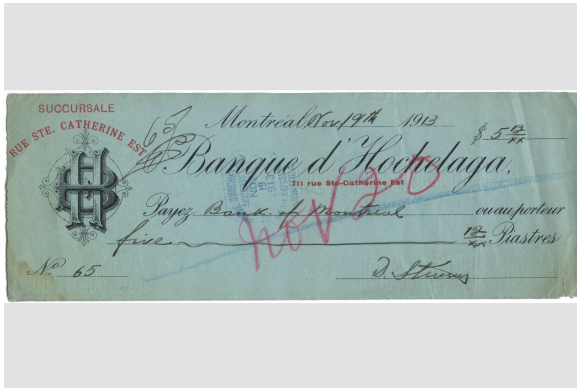 SUCCURSALE
RUE STE. CATHERINE EST
Montréal, Nov 19th 1913
$ 5 12/xx
Banque d'Hochelaga,
111 rue Ste-Catherine Est
Payez Bank of Montreal ou au porteur
five 12/xx Piastres
Nov 20
No 65